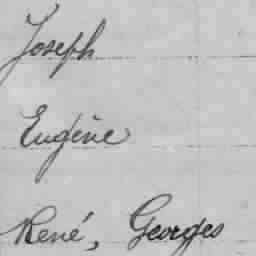 Joseph
Eugène
René, Georges